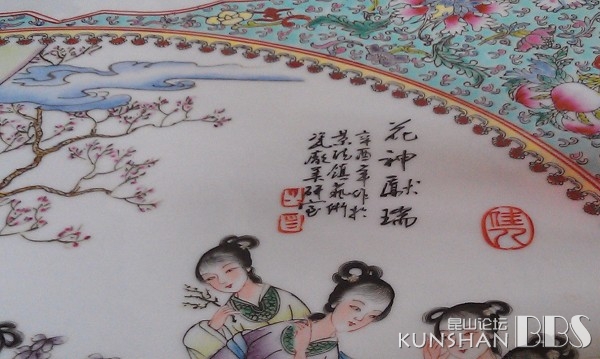 花神献瑞
辛酉年作於
景德镇艺術
瓷廠美研室
昆山论坛
KUNSHAN BBS